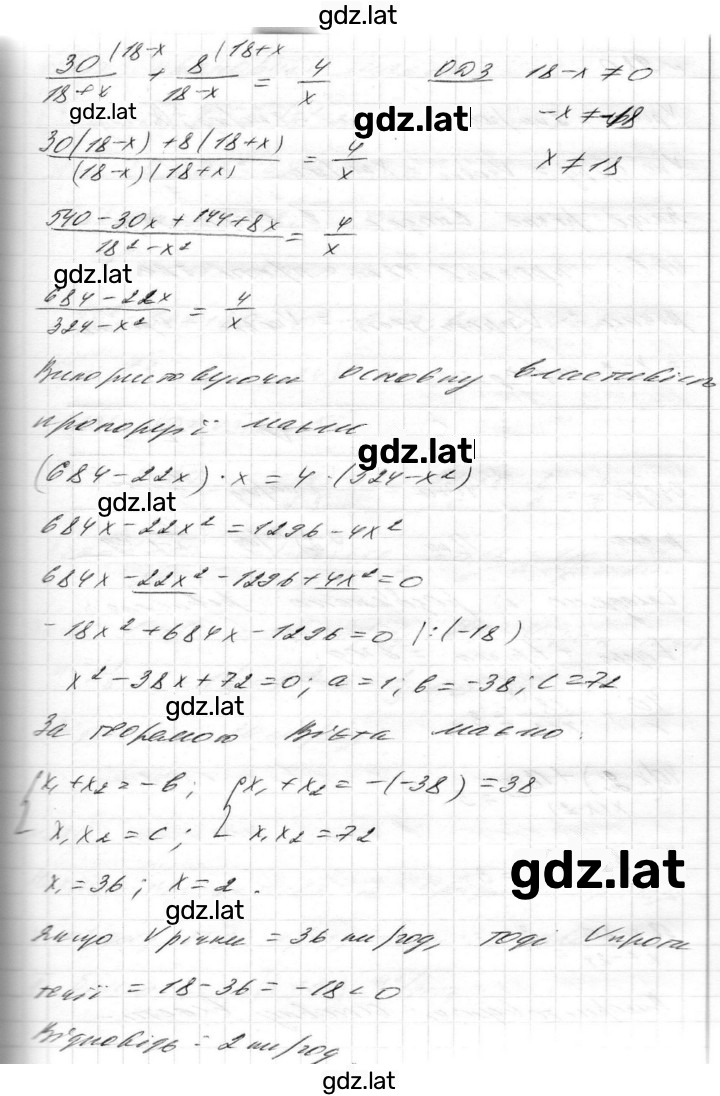 gdz.lat
30/(18+x) (18-x + 8/(18-x) (18+x = 4/x   ОДЗ 18-x ≠ 0
gdz.lat gdz.lat -x ≠ -18
(30(18-x)+8(18+x))/((18-x)(18+x)) = 4/x   x ≠ 18
(540-30x+144+8x)/(18²-x²) = 4/x
gdz.lat
(684-22x)/(324-x²) = 4/x
Використовуючи основну властивість
пропорції маємо
gdz.lat
(684-22x)·x = 4·(324-x²)
gdz.lat
684x-22x² = 1296-4x²
684x-22x²-1296+4x²=0
-18x²+684x-1296=0 |:(-18)
x²-38x+72=0; a=1; b=-38; c=72
gdz.lat
За теоремою Вієта маємо:
{x₁+x₂=-b; {x₁+x₂=-(-38)=38
x₁x₂=c; x₁x₂=72
gdz.lat
x₁=36; x=2.
gdz.lat
Якщо Vрічки = 36 км/год, тоді Vпроти
течії = 18-36=-18<0
Відповідь: 2 км/год
gdz.lat